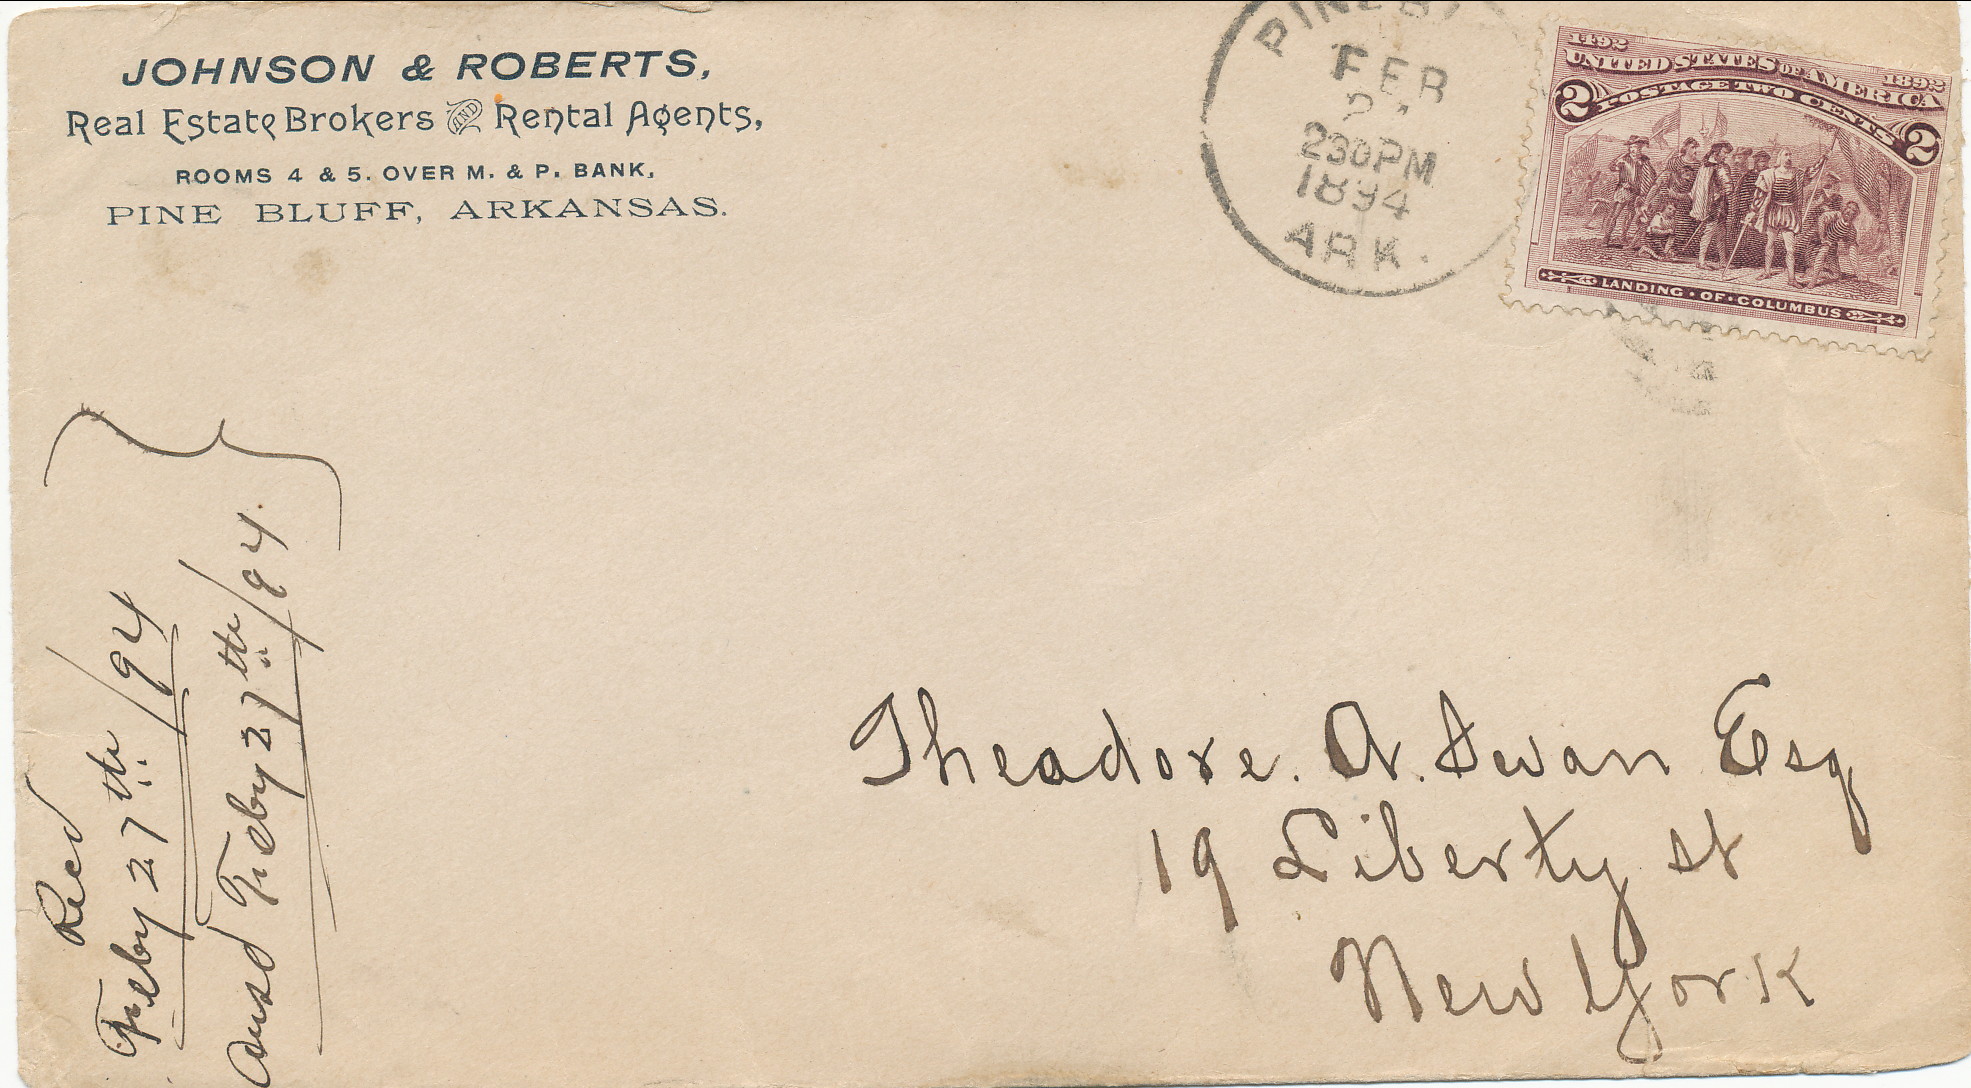 JOHNSON & ROBERTS,
Real Estate Brokers AND Rental Agents,
ROOMS 4 & 5. OVER M. & P. BANK,
PINE BLUFF, ARKANSAS.
FEB
230PM
1894
ARK.
1492
1892
UNITED STATES OF AMERICA
2 POSTAGE TWO CENTS 2
LANDING · OF · COLUMBUS
Recd
Feby 27th /94
Ansd Feby 27th /94
Theadore. A. Swan Esq
19 Liberty st
New York